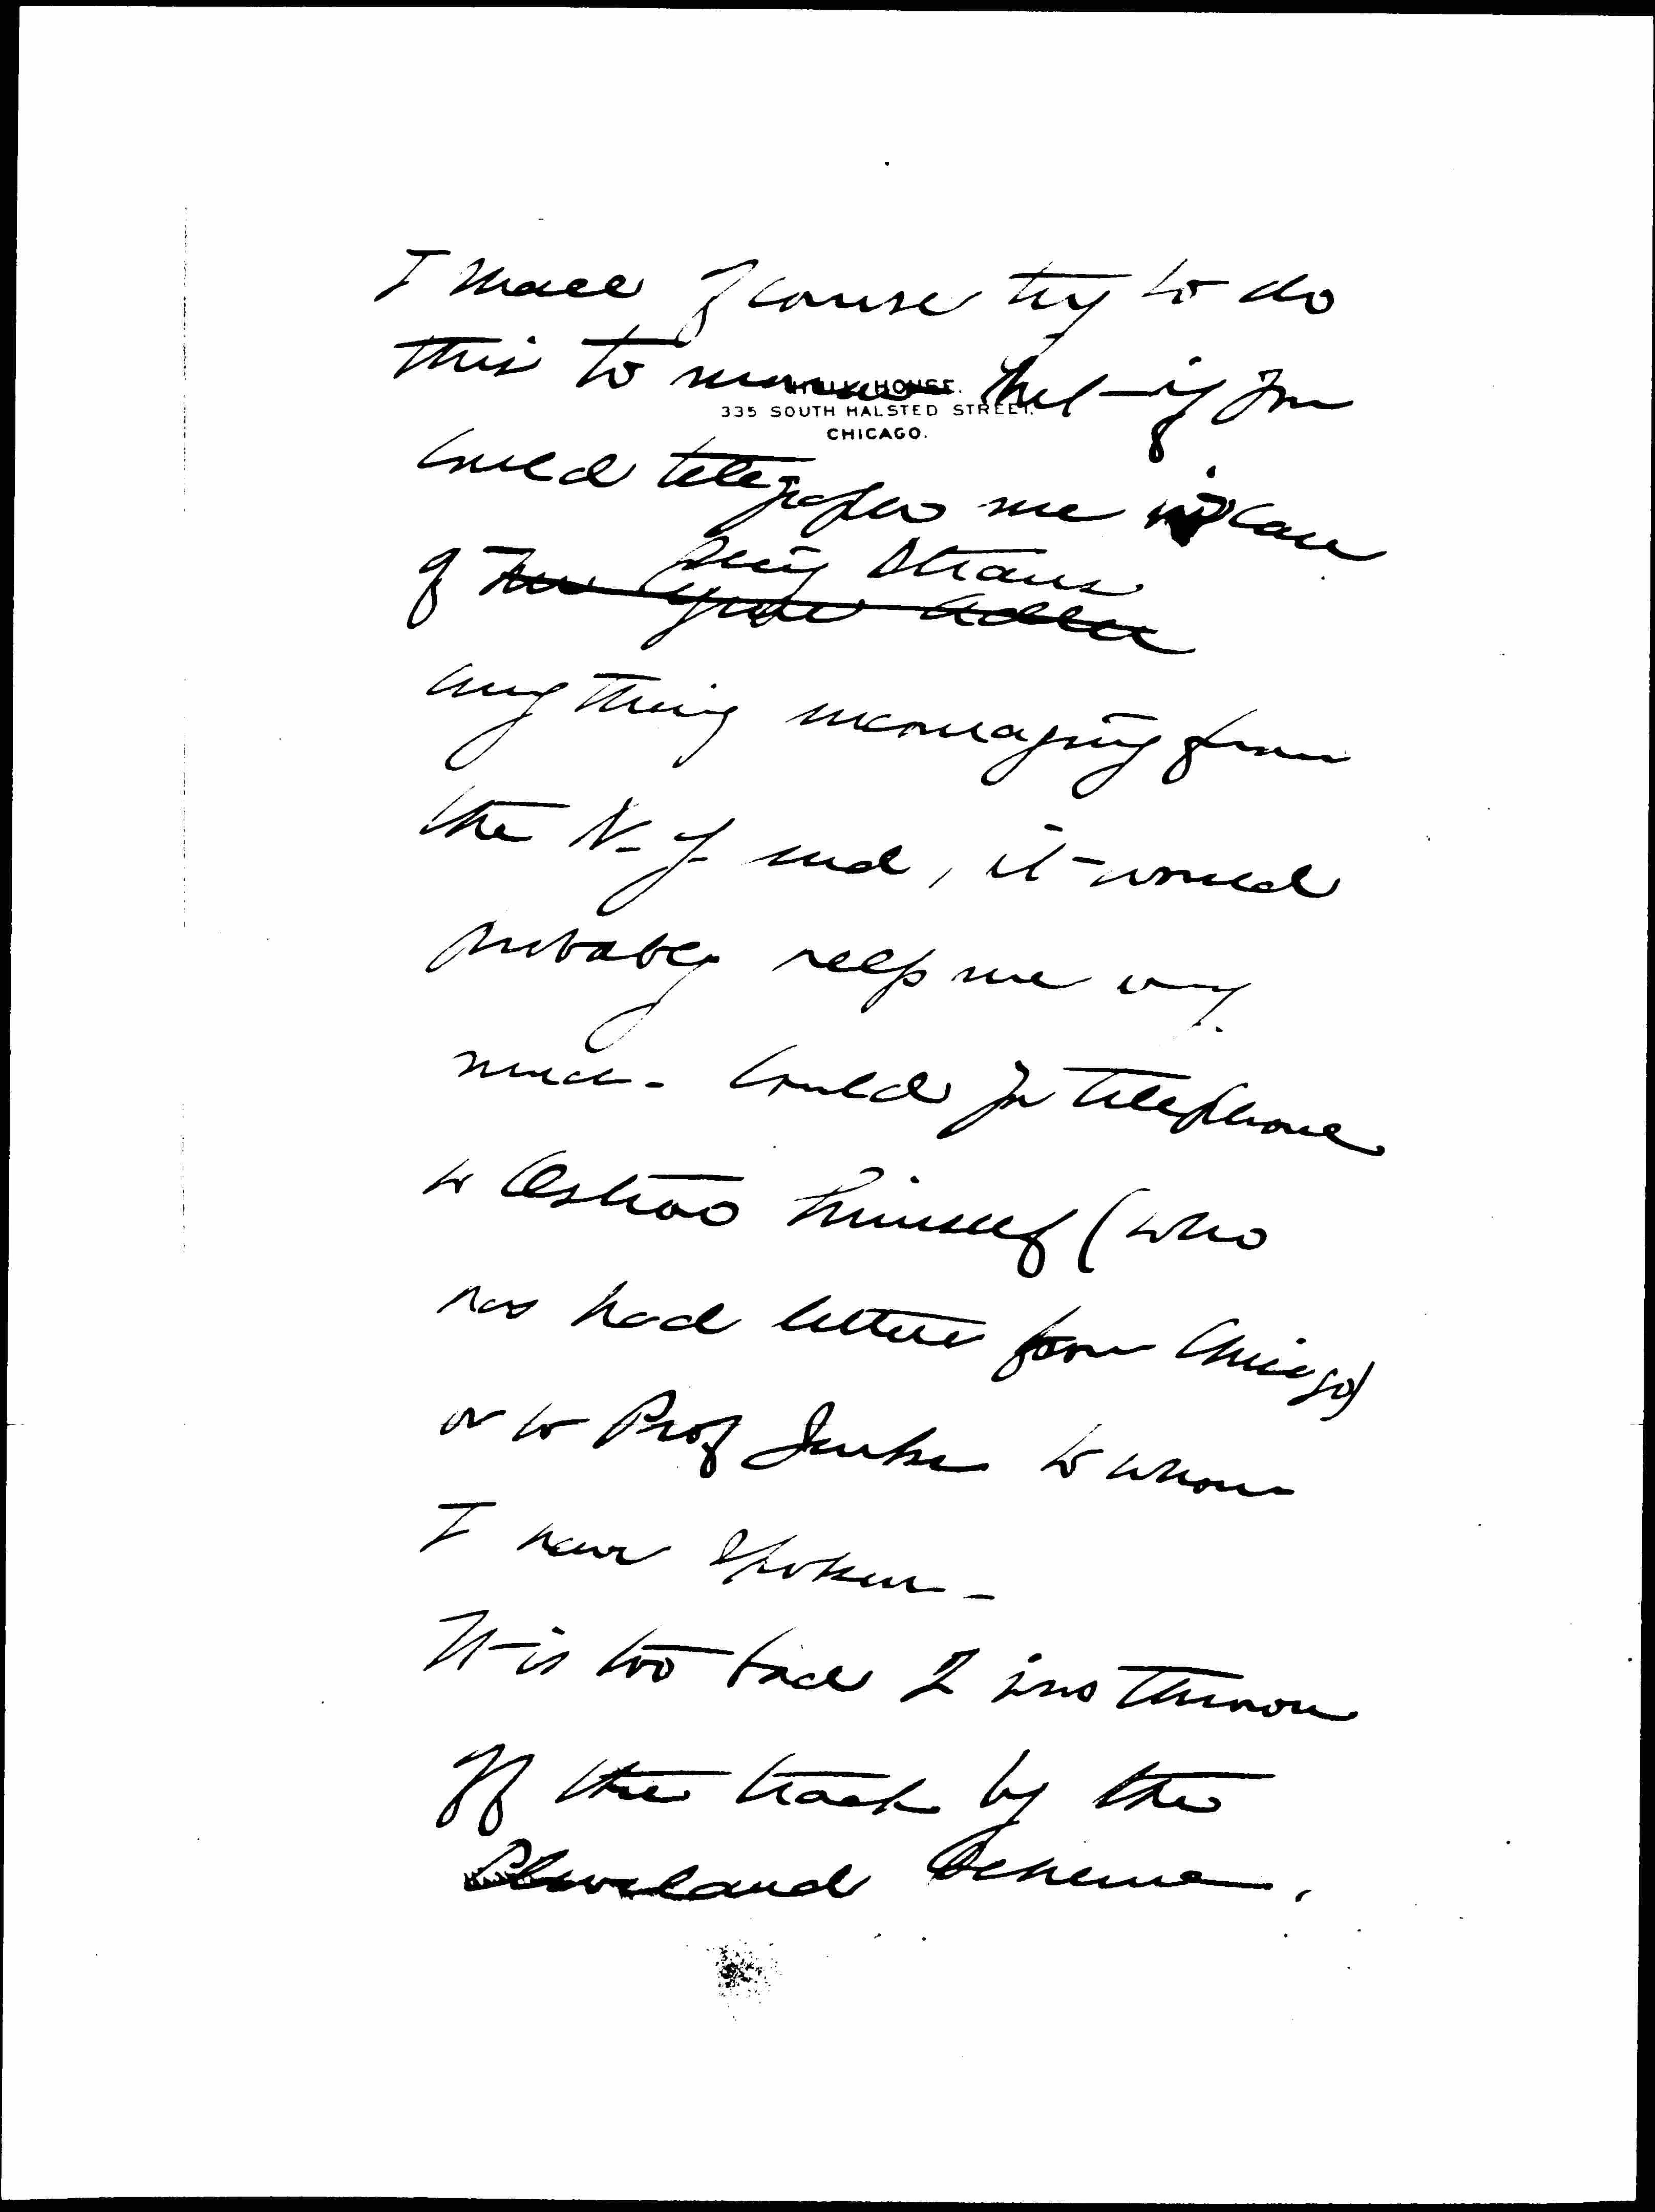 I shall of course try to do
this to morrow but if you
HULL-HOUSE.
335 SOUTH HALSTED STREET,
CHICAGO.
could telegraph me in care
Straus
of Adler
anything encouraging from
the N-Y- end, it would
probably help me very
much- Could you telephone
to himself (who
has had letters from Chicago)
or to Prof Jenks to whom
I have spoken-
It is too bad I was thrown
off the track by the
Cleveland scheme.